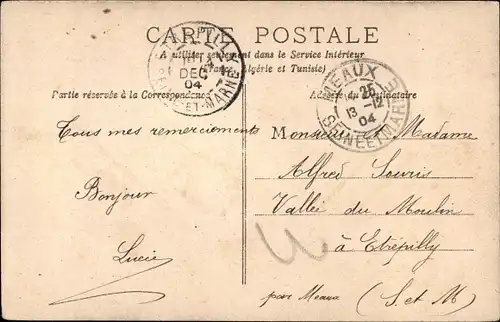 CARTE POSTALE
A utiliser seulement dans le Service Intérieur
(France, Algérie et Tunisie)
DEC
04
ET-MARNE
MEAUX
13-12
04
SEINE-ET-MARNE
Partie réservée à la Correspondance
Adresse du Destinataire
Tous mes remerciements
Bonjour
Lucie
Monsieur et Madame
Alfred Souris
Vallée du Moulin
à Etrépilly
par Meaux (S. et M)